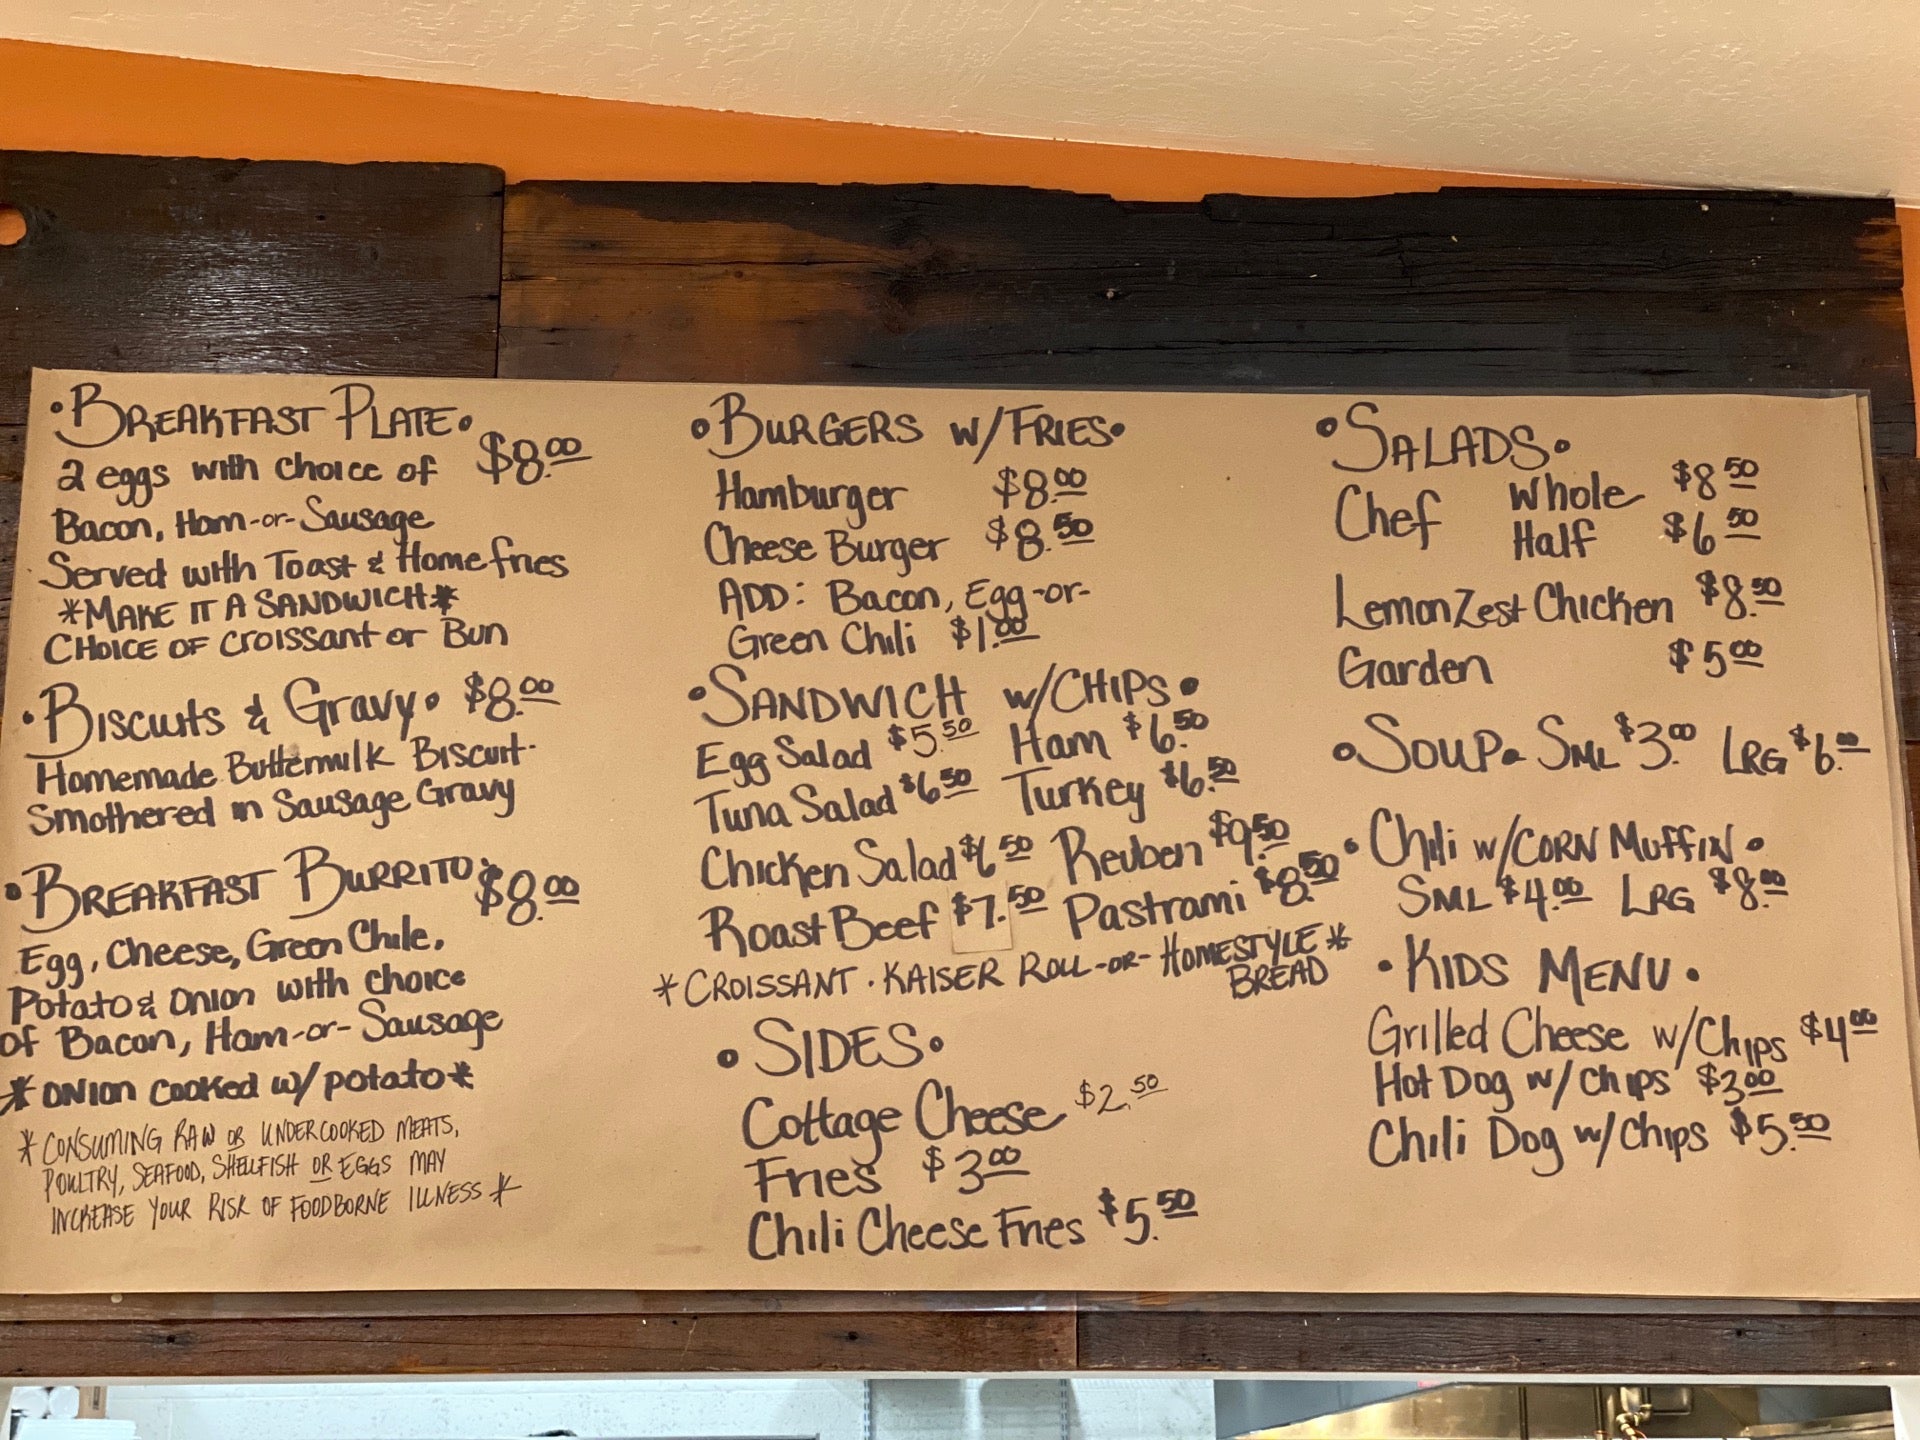 •Breakfast Plate•
2 eggs with choice of $8.00
Bacon, Ham-or-Sausage
Served with Toast & Home fries
*MAKE IT A SANDWICH*
CHOICE OF CROISSANT or BUN
•Biscuits & Gravy• $8.00
Homemade Buttermilk Biscuit
Smothered in Sausage Gravy
•Breakfast Burrito• $8.00
Egg, Cheese, Green Chile,
Potato & Onion with choice
of Bacon, Ham-or-Sausage
*ONION COOKED w/ potato*
*CONSUMING RAW OR UNDERCOOKED MEATS,
POULTRY, SEAFOOD, SHELLFISH OR EGGS MAY
INCREASE YOUR RISK OF FOODBORNE ILLNESS*
•BURGERS w/FRIES•
Hamburger $8.00
Cheese Burger $8.50
ADD: Bacon, Egg-or-
Green Chili $1.00
•SANDWICH w/CHIPS•
Egg Salad $5.50 Ham $6.50
Tuna Salad $6.50 Turkey $6.50
Chicken Salad $6.50 Reuben $9.50
Roast Beef $7.50 Pastrami $8.50
*CROISSANT • KAISER ROLL-OR-HOMESTYLE*
BREAD
•SIDES•
Cottage Cheese $2.50
Fries $3.00
Chili Cheese Fries $5.50
•SALADS•
Chef Whole $8.50
Half $6.50
Lemon Zest Chicken $8.50
Garden $5.00
•SOUP• SML $3.00 LRG $6.00
•Chili w/CORN MUFFIN•
SML $4.00 LRG $8.00
•KIDS MENU•
Grilled Cheese w/Chips $4.00
Hot Dog w/chips $3.00
Chili Dog w/chips $5.50